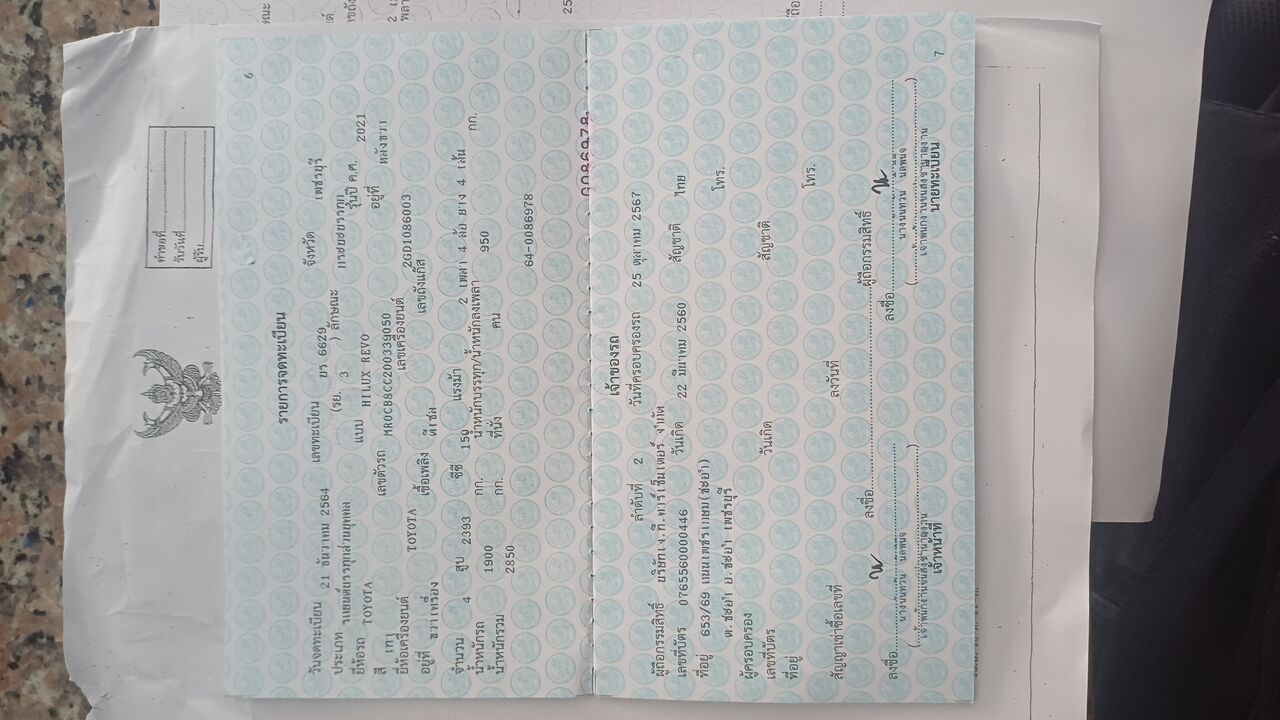 คำขอที่
รับวันที่
ผู้รับ
6
รายการจดทะเบียน
วันจดทะเบียน 21 ธันวาคม 2564 เลขทะเบียน ยว 6629 จังหวัด เพชรบุรี
ประเภท รถยนต์บรรทุกส่วนบุคคล (รย. 3 ) ลักษณะ กระบะบรรทุก
ยี่ห้อรถ TOYOTA แบบ HILUX REVO รุ่นปี ค.ศ. 2021
สี เทา เลขตัวรถ MR0CB8CC200339050 อยู่ที่ หลังขวา
ยี่ห้อเครื่องยนต์ TOYOTA เลขเครื่องยนต์ 2GD1086003
อยู่ที่ ขวาเครื่อง เชื้อเพลิง ดีเซล เลขถังแก๊ส
จำนวน 4 สูบ 2393 ซีซี 150 แรงม้า 2 เพลา 4 ล้อ ยาง 4 เส้น
น้ำหนักรถ 1900 กก. น้ำหนักบรรทุก/น้ำหนักลงเพลา 950 กก.
น้ำหนักรวม 2850 กก. ที่นั่ง คน
64-0086978
0086978
เจ้าของรถ
ลำดับที่ 2 วันที่ครอบครองรถ 25 ตุลาคม 2567
ผู้ถือกรรมสิทธิ์ บริษัทเจ.ที.พาร์เซ็นเตอร์ จำกัด
เลขที่บัตร 0765560000446 วันเกิด 22 มีนาคม 2560 สัญชาติ ไทย
ที่อยู่ 653/69 ถนนเพชรเกษม(ชะอำ)
ต.ชะอำ อ.ชะอำ เพชรบุรี โทร.
ผู้ครอบครอง
เลขที่บัตร วันเกิด สัญชาติ
ที่อยู่
โทร.
สัญญาเช่าซื้อเลขที่ ลงวันที่
ลงชื่อ ผู้ถือกรรมสิทธิ์
ลงชื่อ ลงชื่อ
เจ้าพนักงานขนส่งชำนาญงาน เจ้าพนักงานขนส่งชำนาญงาน
เจ้าหน้าที่ นายทะเบียน
7